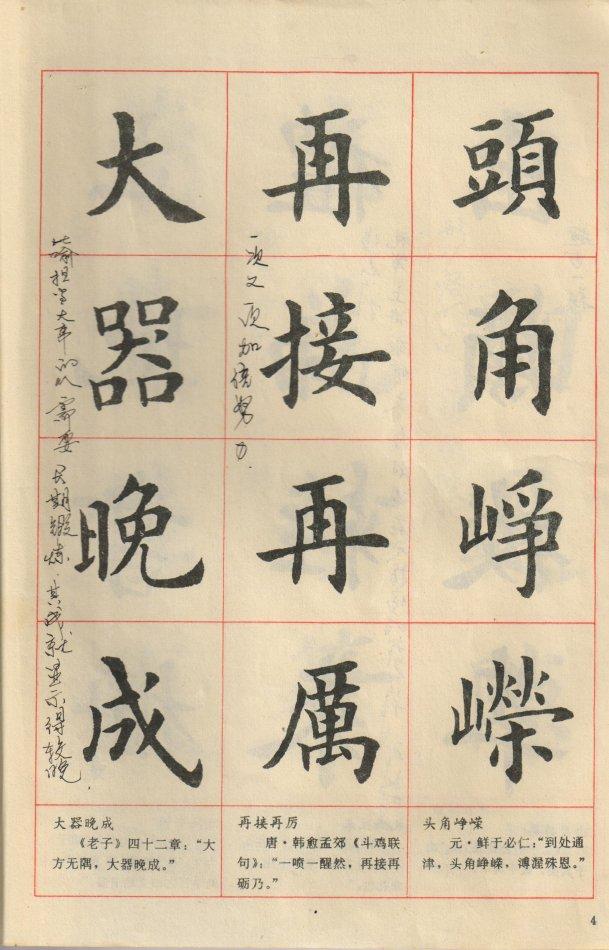 頭角崢嶸
再接再厲
大器晚成
一次又一次加倍努力.
喻担当大事的人需要长期锻炼.其成就显示得较晚.
大器晚成
《老子》四十二章：“大
方无隅，大器晚成。”
再接再厉
唐·韩愈孟郊《斗鸡联
句》：“一喷一醒然，再接再
砺乃。”
头角峥嵘
元·鲜于必仁：“到处通
津，头角峥嵘，溥渥殊恩。”
4